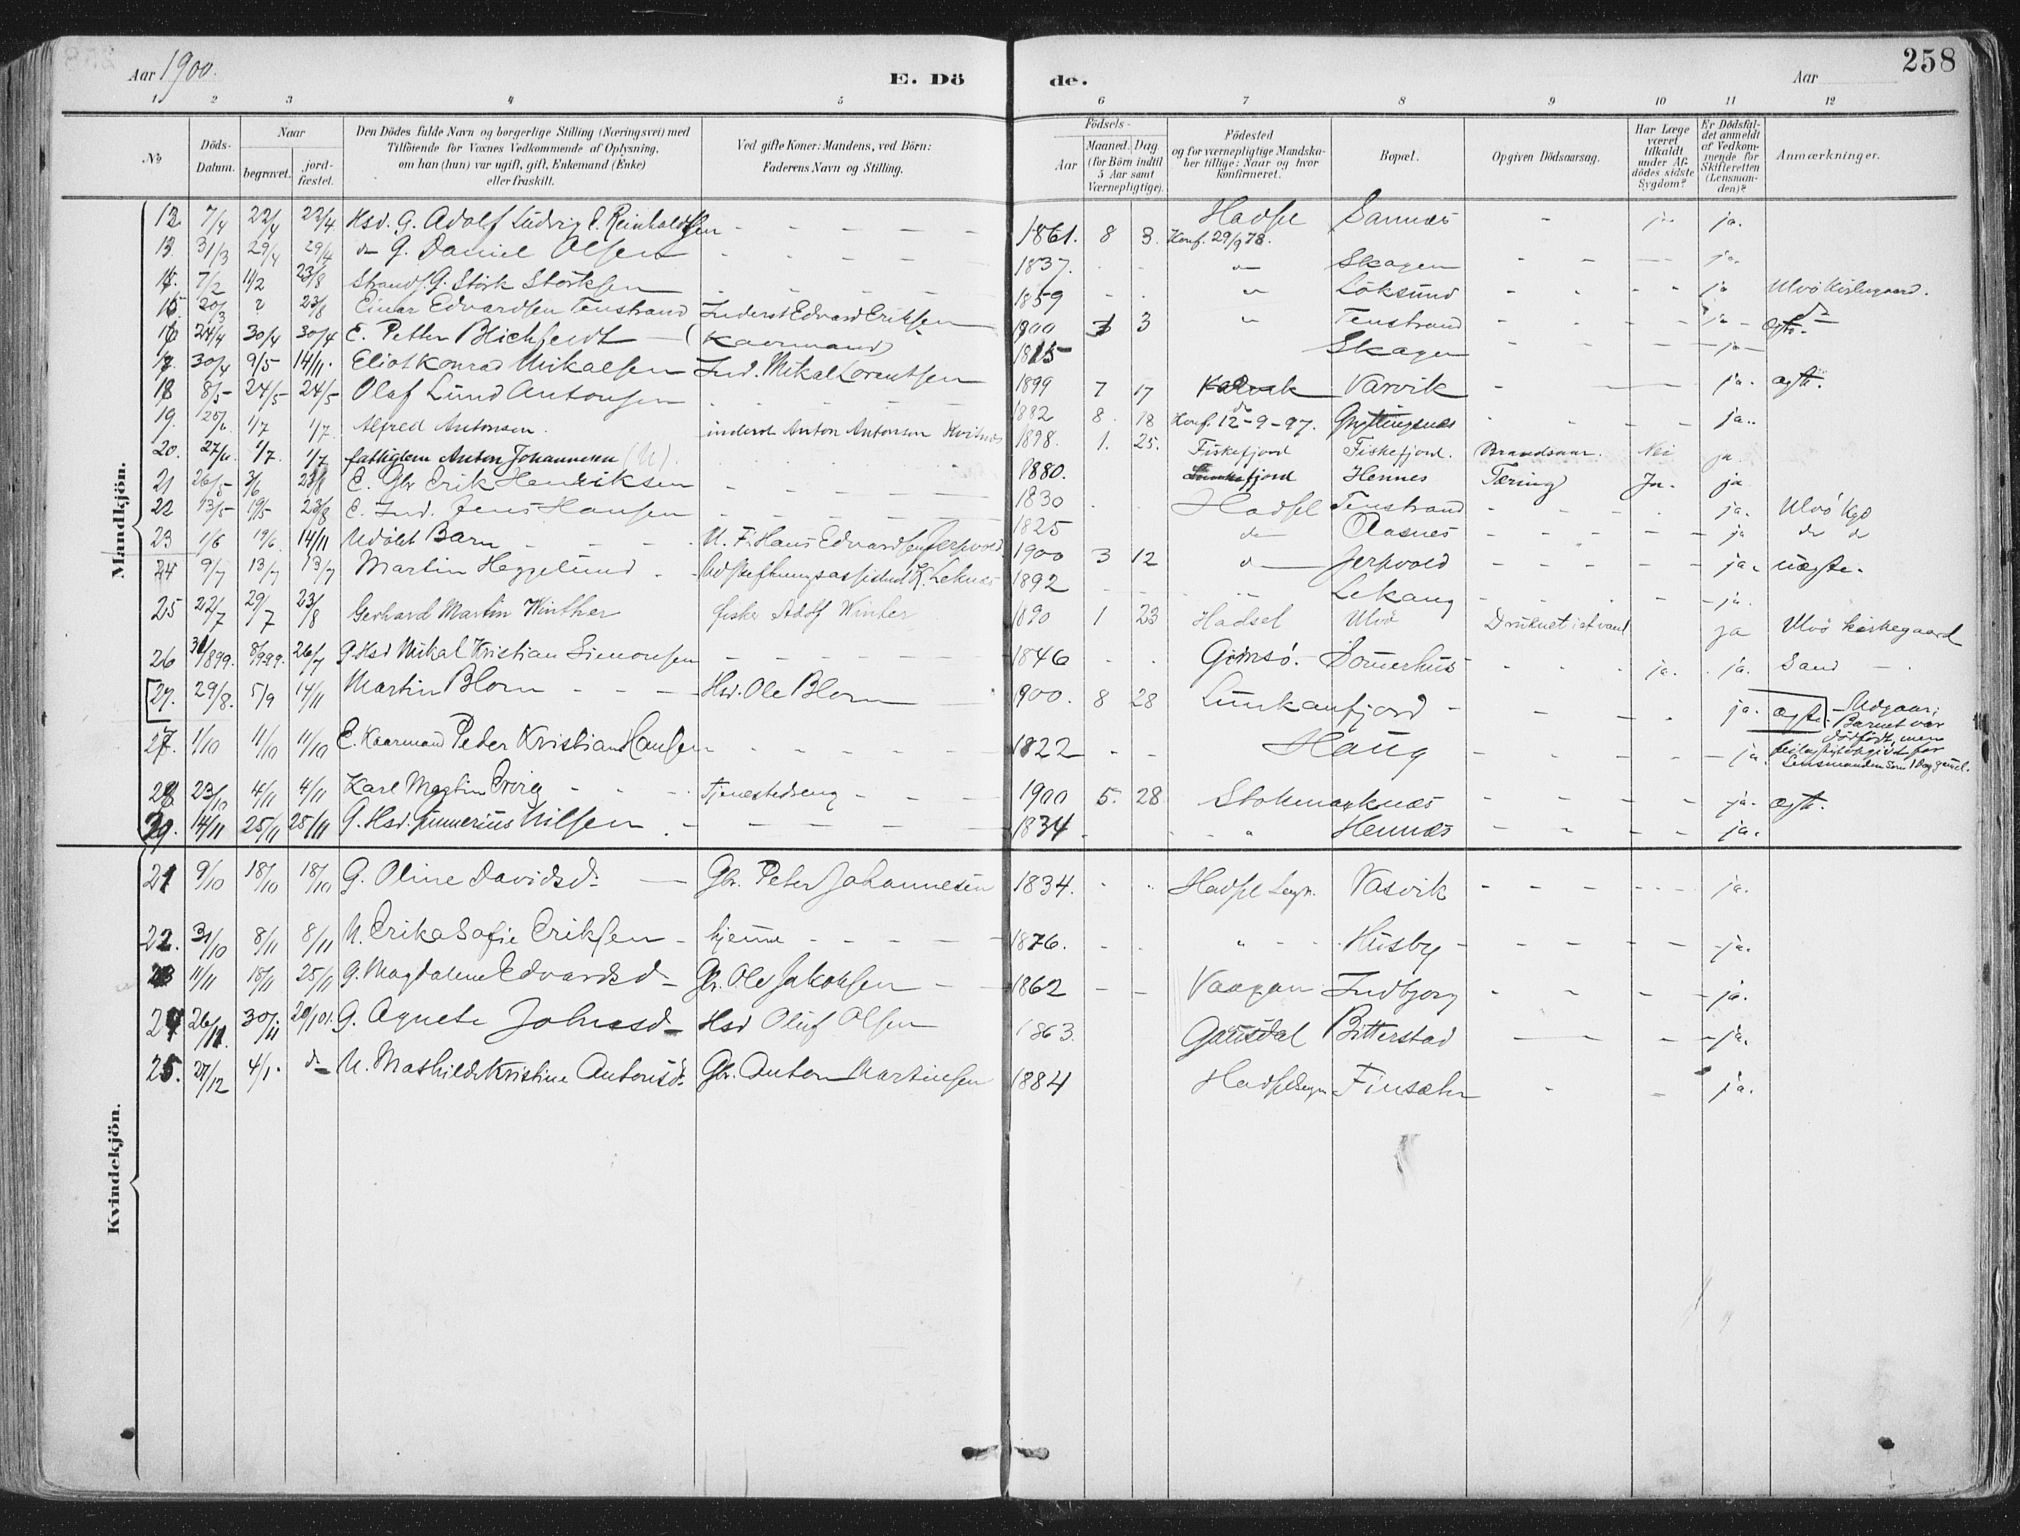 258
Aar 1900.
E. Dö
de.
Aar
1 2 3 4 5 6 7 8 9 10 11 12
No
Döds-Datum.
Naar
begravet. jord-fæstet.
Den Dödes fulde Navn og borgerlige Stilling (Næringsvei) med
Tilföiende for Voxnes Vedkommende af Oplysning,
om han (hun) var ugift, gift, Enkemand (Enke)
eller fraskilt.
Ved gifte Koner: Mandens, ved Börn:
Faderens Navn og Stilling.
Födsels-
Aar
Maaned. Dag.
(for Börn indtil
5 Aar samt
Værnepligtige).
Födested
og for værnepligtige Mandska-
ber tillige: Naar og hvor
konfirmeret.
Bopæl.
Opgiven Dödsaarsag.
Har Læge
været
tilkaldt
under Af-
dödes sidste
Sygdom?
Er Dödsfal-
det anmeldt
af Vedkom-
mende for
Skifteretten
(Lensman-
den)?
Anmærkninger.
Mandkjön.
12 7/4 22/4 22/4 Hsd. G. Adolf Ludvig E. Reinholdtsen 1861. 8 3. Hadsel Konf. 29/9 78. Sannæs - ja ja.
13 31/3 29/4 29/4 do G. Daniel Olsen 1837. do Skagen ja.
14 7/2 11/2 23/8 Strands. G. Stork Storksen 1859 do Löksund ja Ulvö Kirkegaard.
15 20/3 2 23/8 Einar Edvardsen Tenstrand Inderst Edvard Eriksen 1900 3 3 " Tenstrand ja do ægte.
16 24/4 30/4 30/4 E. Petter Blichfeldt (Kaarmand) 1815 Skagen ja
17 30/4 9/5 14/11. Eliot Konrad Mikalsen Ind. Mikal Lorentsen 1899 7 17 Varvik ja. ægte.
18 8/5 24/5 24/5 Olaf Lund Antonsen 1882 8. 18 do Konf. 12-9-97. Gryttingsnæs ja.
19. 25/6 1/7 1/7. Alfred Antonsen. inderst Anton Antonsen Kvitnes 1898. 1. 25. Fiskefjord Fiskefjord. Brandsaar. Nei ja
20. 27/6 1/7. 1/7 fattiglem Anton Johannesen (U). 1880. fjord Hennes Tæring Ja. ja
21 26/5 3/6 23/8 E. Gbr Erik Hendriksen 1830 Hadsel Tenstrand ja. Ulvö Kgd
22 13/5 19/5 23/8 E. Ind. Jens Hansen 1825 do Aasnes ja do do
23 1/6 19/6. 14/11 Udöbt Barn U. F. Hans Edvardsen Jerpvold 1900 3 12 do Jerpvold ja. uægte.
24 9/7 13/7 13/7 Martin Heggelund 1892 Lekang ja.
25 22/7 29/7 23/8 Gerhard Martin Winther fisker Adolf Winter 1890 1 23 Hadsel Ulvö Druknet i et vand ja Ulvö kirkegaard
26 31/1899. 8/1899. 26/7 G. Hsd Mikal Kristian Simonsen 1846 Gimsö. Somerhus ja. ja. Sand
27. 29/8. 5/9 17/11 Martin Blom Hsd. Ole Blom 1900. 8 28 Lunkanfjord ja. ægte. Udgaar; Barnet var dödfödt, men Lensmanden som 1 Dag gammel.
27. 1/10 11/10 11/10 E. Kaarmand Peder Kristian Hansen 1822 Haug ja.
28 23/10 4/11 4/11 Karl Martin Tjenestedreng 1900 5. 28 Stokmarknæs ja. ægte.
29. 14/11 25/11 25/11 G. Hsd. Gunnerius Nilsen 1834 " Hennæs ja.
Kvindekjön.
21 9/10 18/10 18/10 G. Oline Davidsd. Gbr. Peter Johannesen 1834. Hadsel Sogn. Vasvik ja.
22. 31/10 8/11 8/11 U. Erika Sofie Eriksen hjemme 1876. " Husby ja.
23 11/11 18/11 25/11 G. Magdalene Edvardsd. Gbr. Ole Jakobsen 1862 Vaagan Indbjorg ja.
24 26/11. 30/11 20/1 01. G. Agnete Johnsd. Hsd Oluf Olsen 1863. Gausdal Bitterstad ja.
25. 27/12 4/1. do U. Mathilde Kristine Antonsd. Gbr. Anton Martinsen 1884 Hadsel Sogn Finsæter ja.